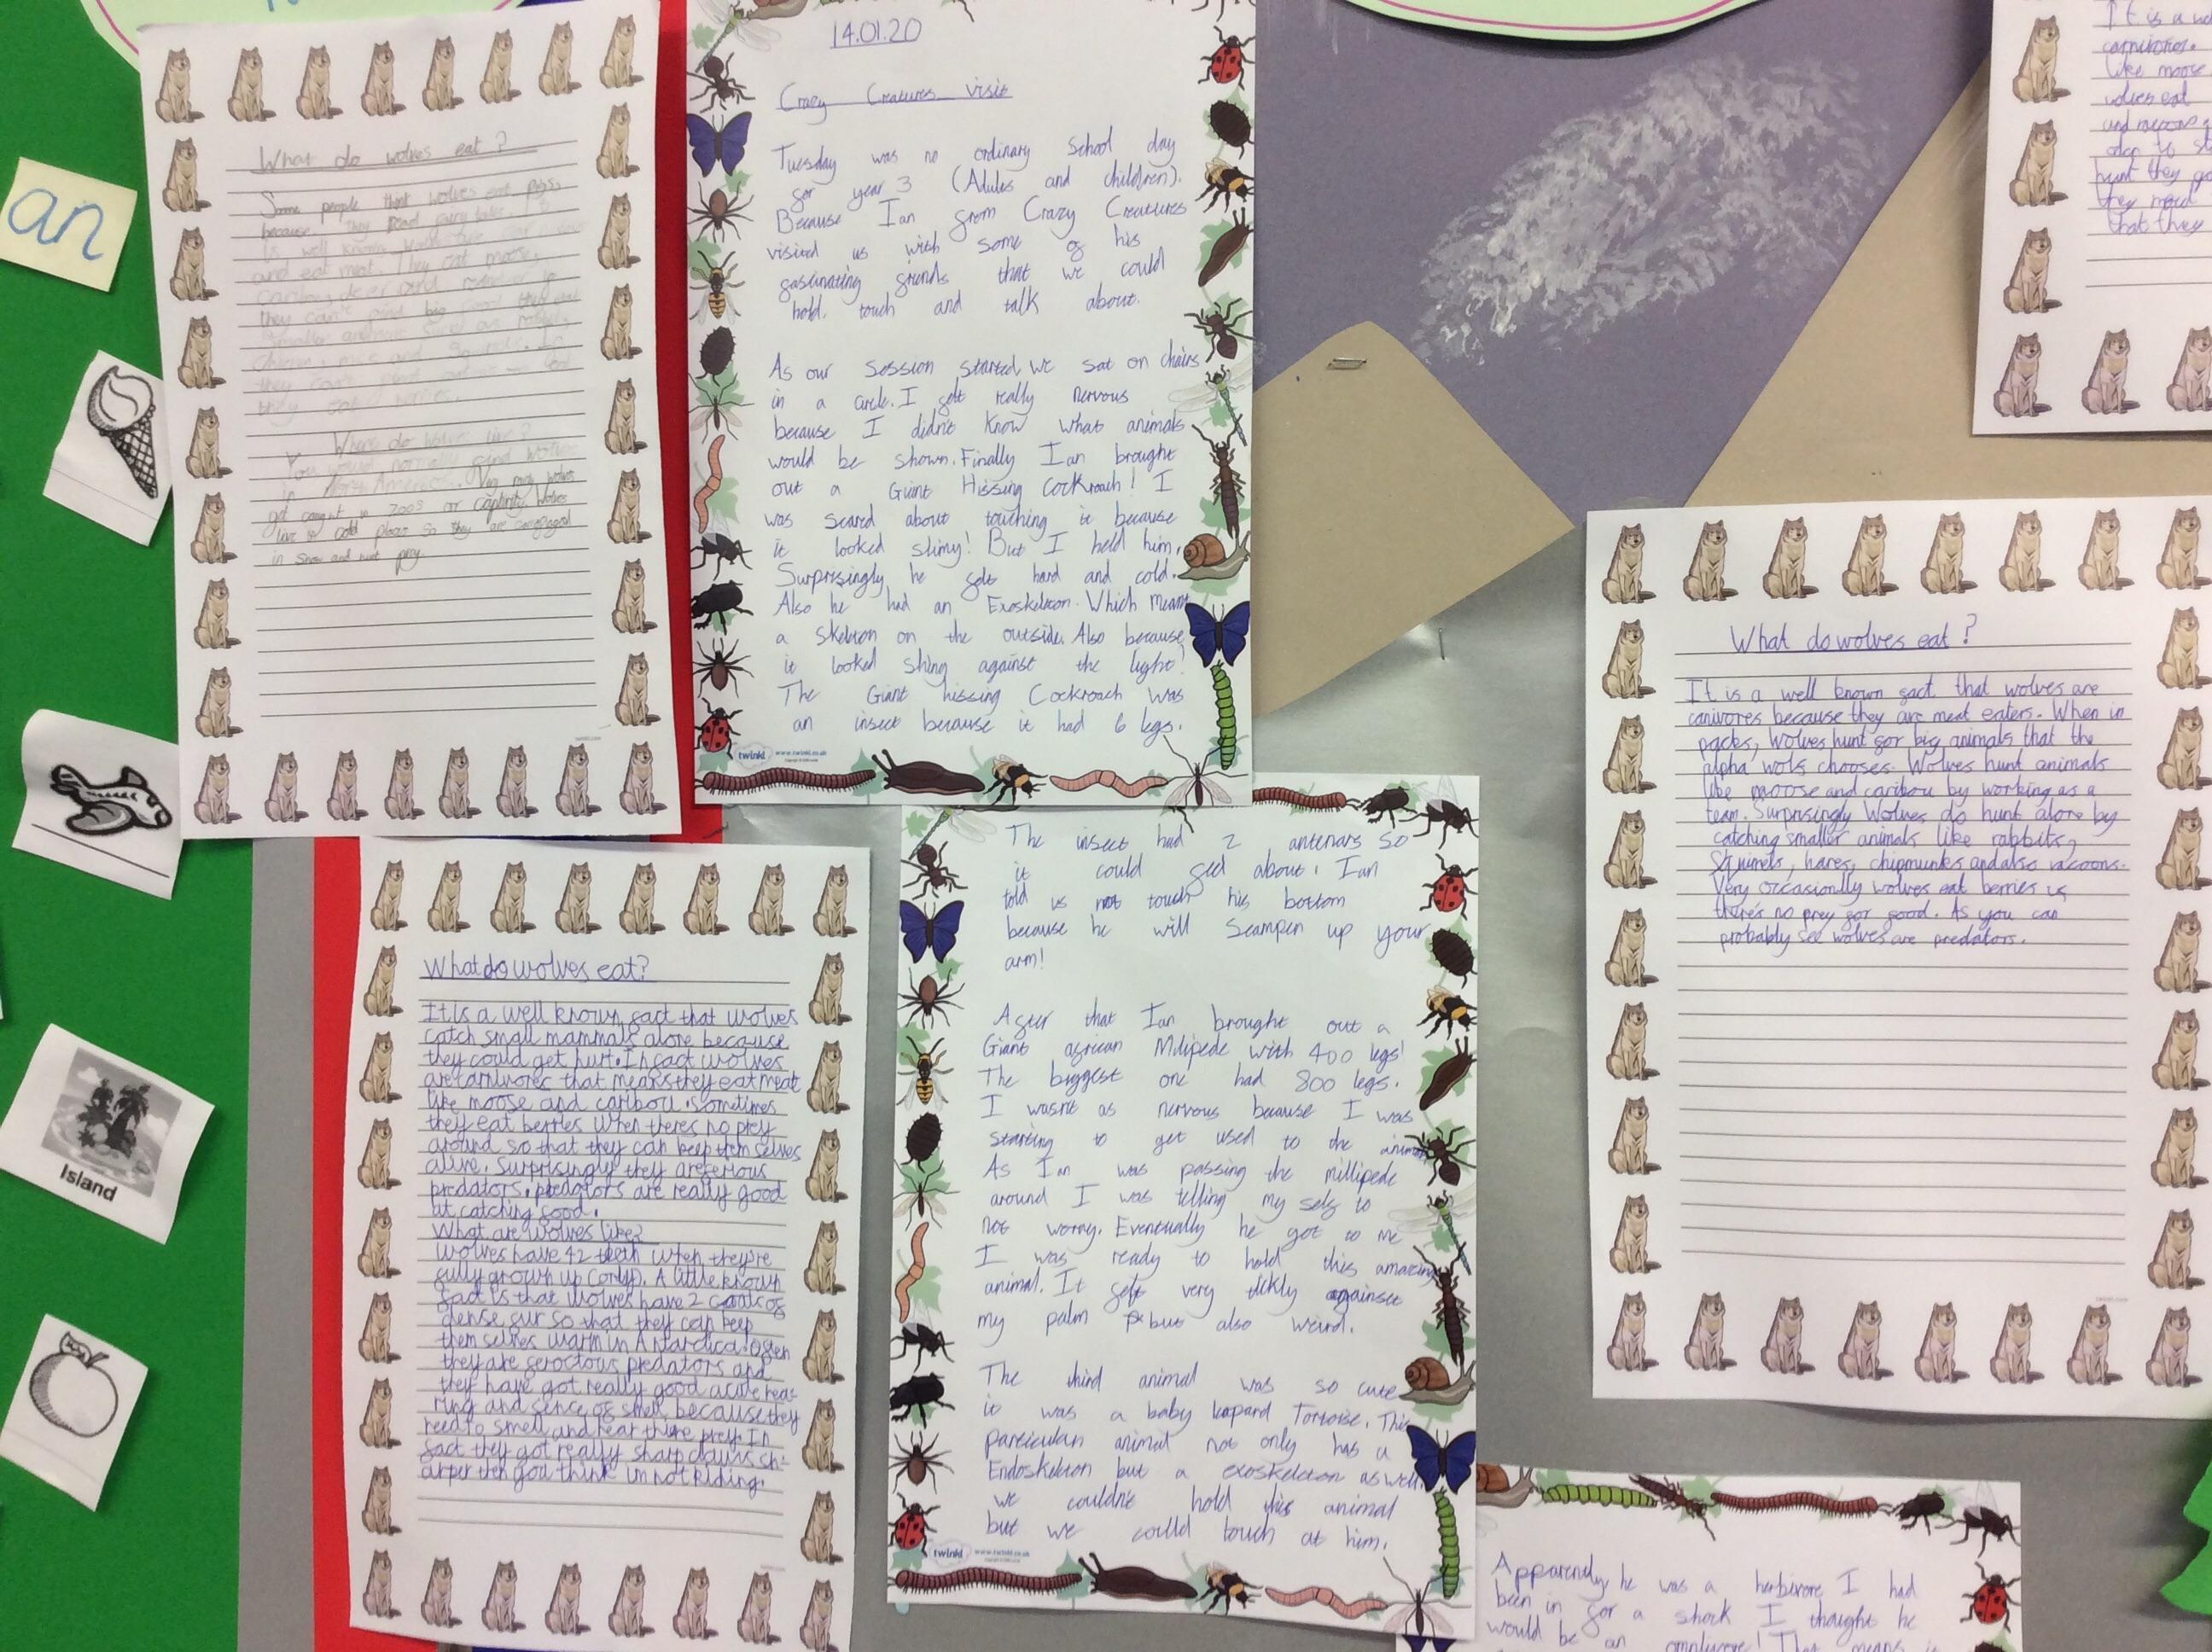 an
Island
What do wolves eat?
Some people think wolves eat pigs
because they read fairy tales.
is well known
and eat meat. They eat moose,
caribou, deer and
they can't find big food they eat
smaller animals such as
mice and
they can't find
they eat berries.
Where do wolves live?
You would normally find wolves
in North America. Very many wolves
get caught in zoos or captivity wolves
live in cold places so they are
in snow and
14.01.20
Crazy Creatures visit
Tuesday was no ordinary School day
for year 3 (Adults and children).
Because Ian from Crazy Creatures
visited us with some of his
fascinating friends that we could
hold, touch and talk about.
As our session started, we sat on chairs
in a circle. I felt really nervous
because I didn't know what animals
would be shown. Finally Ian brought
out a Giant Hissing Cockroach! I
was scared about touching it because
it looked slimy! But I held him.
Surprisingly he felt hard and cold.
Also he had an Exoskeleton. Which means
a skeleton on the outside. Also because
it looked shing against the light!
The Giant hissing Cockroach was
an insect because it had 6 legs.
twinkl www.twinkl.co.uk
The insect had 2 antenars so
it could feel about. Ian
told us not touch his bottom
because he will Scamper up your
arm!
After that Ian brought out a
Giant african Milipede with 400 legs!
The biggest one had 800 legs.
I wasn't as nervous because I was
starting to get used to the
As Ian was passing the millipede
around I was telling my self to
not worry. Eventually he got to me
I was ready to hold this amazing
animal. It felt very tickly against
my palm but also weird.
The third animal was so cute
it was a baby leopard Tortoise. This
particular animal not only has a
Endoskeleton but a exoskeleton as well.
we couldn't hold this animal
but we could touch at him.
twinkl www.twinkl.co.uk
Apparently he was a herbivore I had
been in for a shock I thought he
would be an omnivore! That means
What do wolves eat?
It is a well known fact that wolves
catch small mammals alone because
they could get hurt. In fact wolves
are carnivores that means they eat meat
like moose and caribou. sometimes
they eat berries when theres no prey
around so that they can keep them selves
alive. Surprisingly they are
predators. predators are really good
at catching food.
What are wolves like?
Wolves have 42 teeth when they're
fully grown up (only). A little known
fact is that wolves have 2 coats of
dense fur so that they can keep
them selves warm in Antardica. Ofen
they are feroctous predators and
they have got really good acute hea-
ring and sence of smell because they
need to smell and hear there prey. In
fact they got really sharp claws sh-
arper then you think im not kiding.
What do wolves eat?
It is a well known fact that wolves are
canivores because they are meat eaters. When in
packs, Wolves hunt for big animals that the
alpha wolf chooses. Wolves hunt animals
like moose and caribou by working as a
team. Surprisingly Wolves do hunt alone by
catching smaller animals like rabbits,
Squirrels, hares, chipmunks and also racoons.
Very occasionlly wolves eat berries if
there's no prey for food. As you can
probably see wolves are predators.
It is a
carnivores.
like moose
wolves eat
and racoons
hunt they
they need
that they